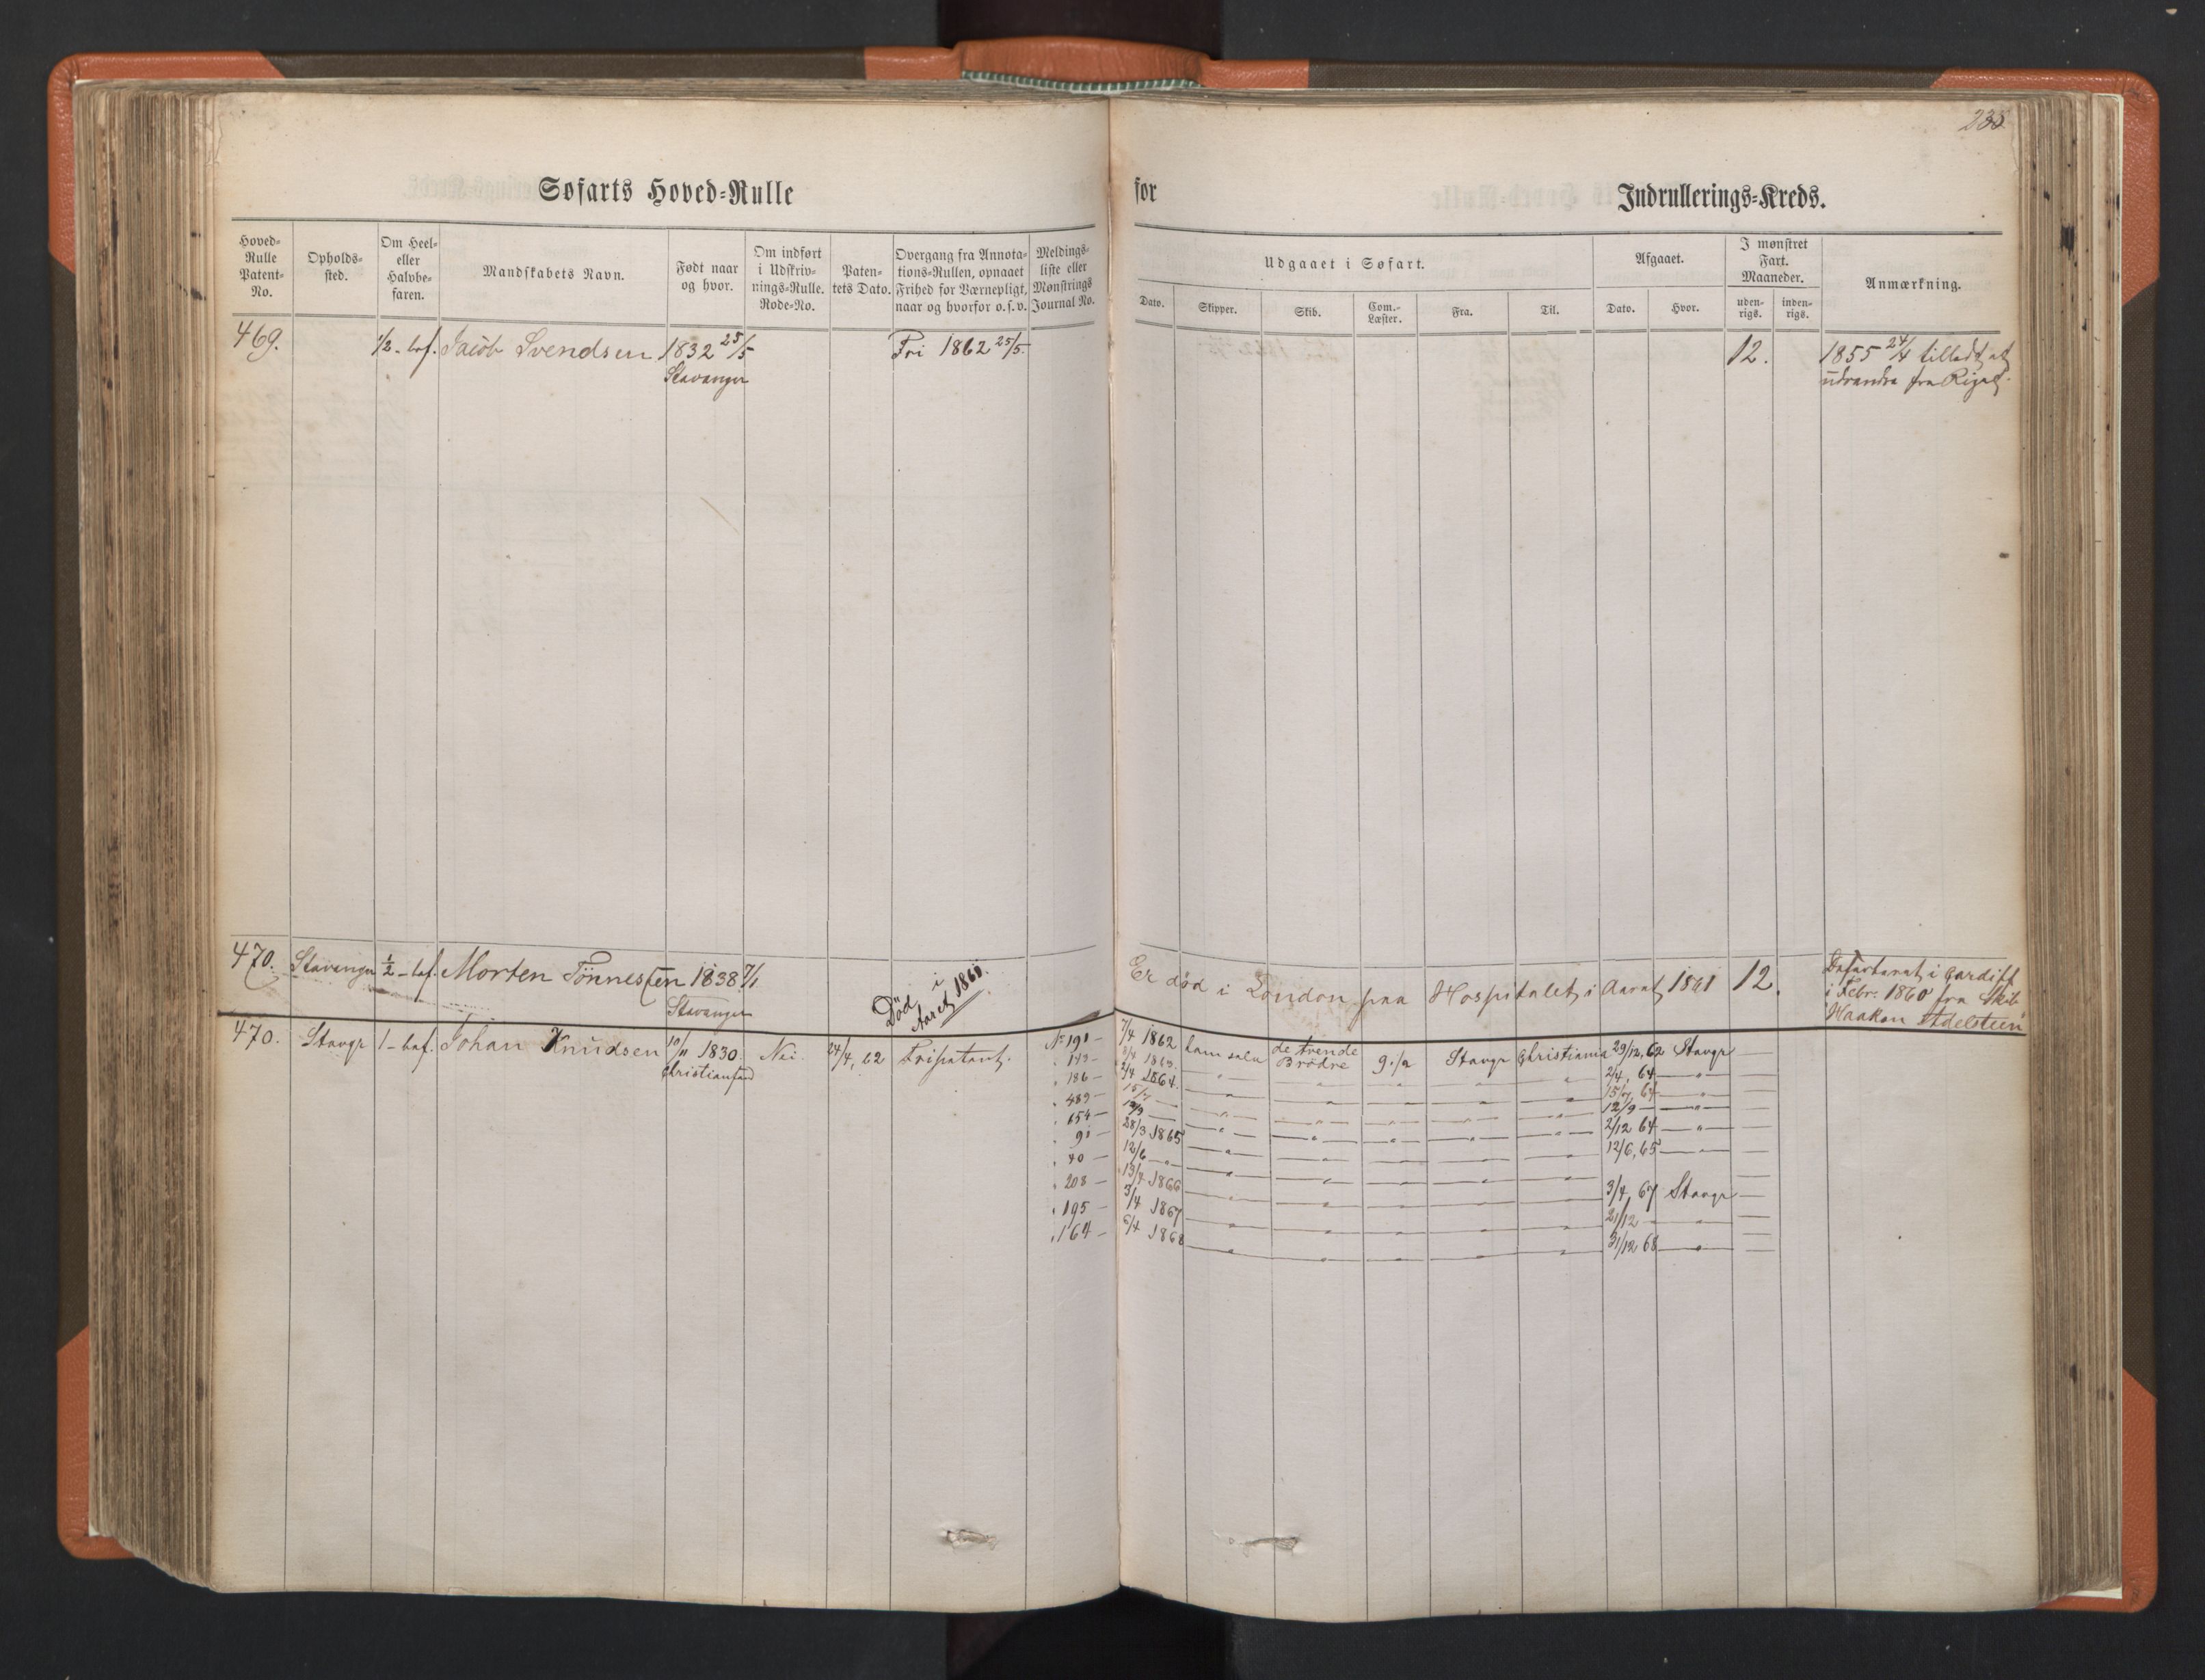 235
Søfarts Hoved-Rulle
for
Indrullerings-Kreds.
Hoved-Rulle Patent-No.
Opholds-sted.
Om Heel- eller Halvbe-faren.
Mandskabets Navn.
Født naar og hvor.
Om indført i Udskriv-nings-Rulle. Rode-No.
Paten-tets Dato.
Overgang fra Annota-tions-Rullen, opnaaet Frihed for Værnepligt, naar og hvorfor o.s.v.
Meldings-liste eller Mønstrings Journal No.
Udgaaet i Søfart.
Dato.
Skipper.
Skib.
Com.-Læster.
Fra.
Til.
Afgaaet.
Dato.
Hvor.
I mønstret Fart. Maaneder.
uden-rigs.
inden-rigs.
Anmærkning.
469. 1/2-bef. Jacob Svendsen 1832 25/5 Fri 1862 25/5. 12. 1855 24/4 tilladt at
Stavanger udvandre fra Riget.
470. Stavanger 1/2-bef. Morten Tönnessen 1838 7/1
Stavanger
Död i
Aaret 1860.
Er död i London paa Hospitalet i Aaret 1861 12.
i Cardiff
i Febr. 1860 fra Skib
Haakon Adelsteen
470. Stavgr 1-bef. Johan Knudsen 10/11 1830 Nei 24/4, 62 Fripatent.
Christiansand
No 191 - 7/4 1862 ham selv de tvende Brödre 9./a Stavgr Christiania 29/12, 62 Stavgr —
" 143 - 1863. — " — 2/4, 64 — " —
" 186 - 2/4 1864. — " — 15/7, 64 — " —
" 489 - 15/7 — — " — 12/9 — " —
" 654 - 12/9 — — " — 2/12 64 — " —
" 91 - 28/3 1865 — " — 12/6, 65 — " —
" 40 - 12/6 — " —
" 208 - 13/4 1866 — " — 3/4, 67 Stavgr —
" 195 - 3/4 1867 — " — 21/12 — " —
" 164 - 6/4 1868 — " — 31/12 68 — " —